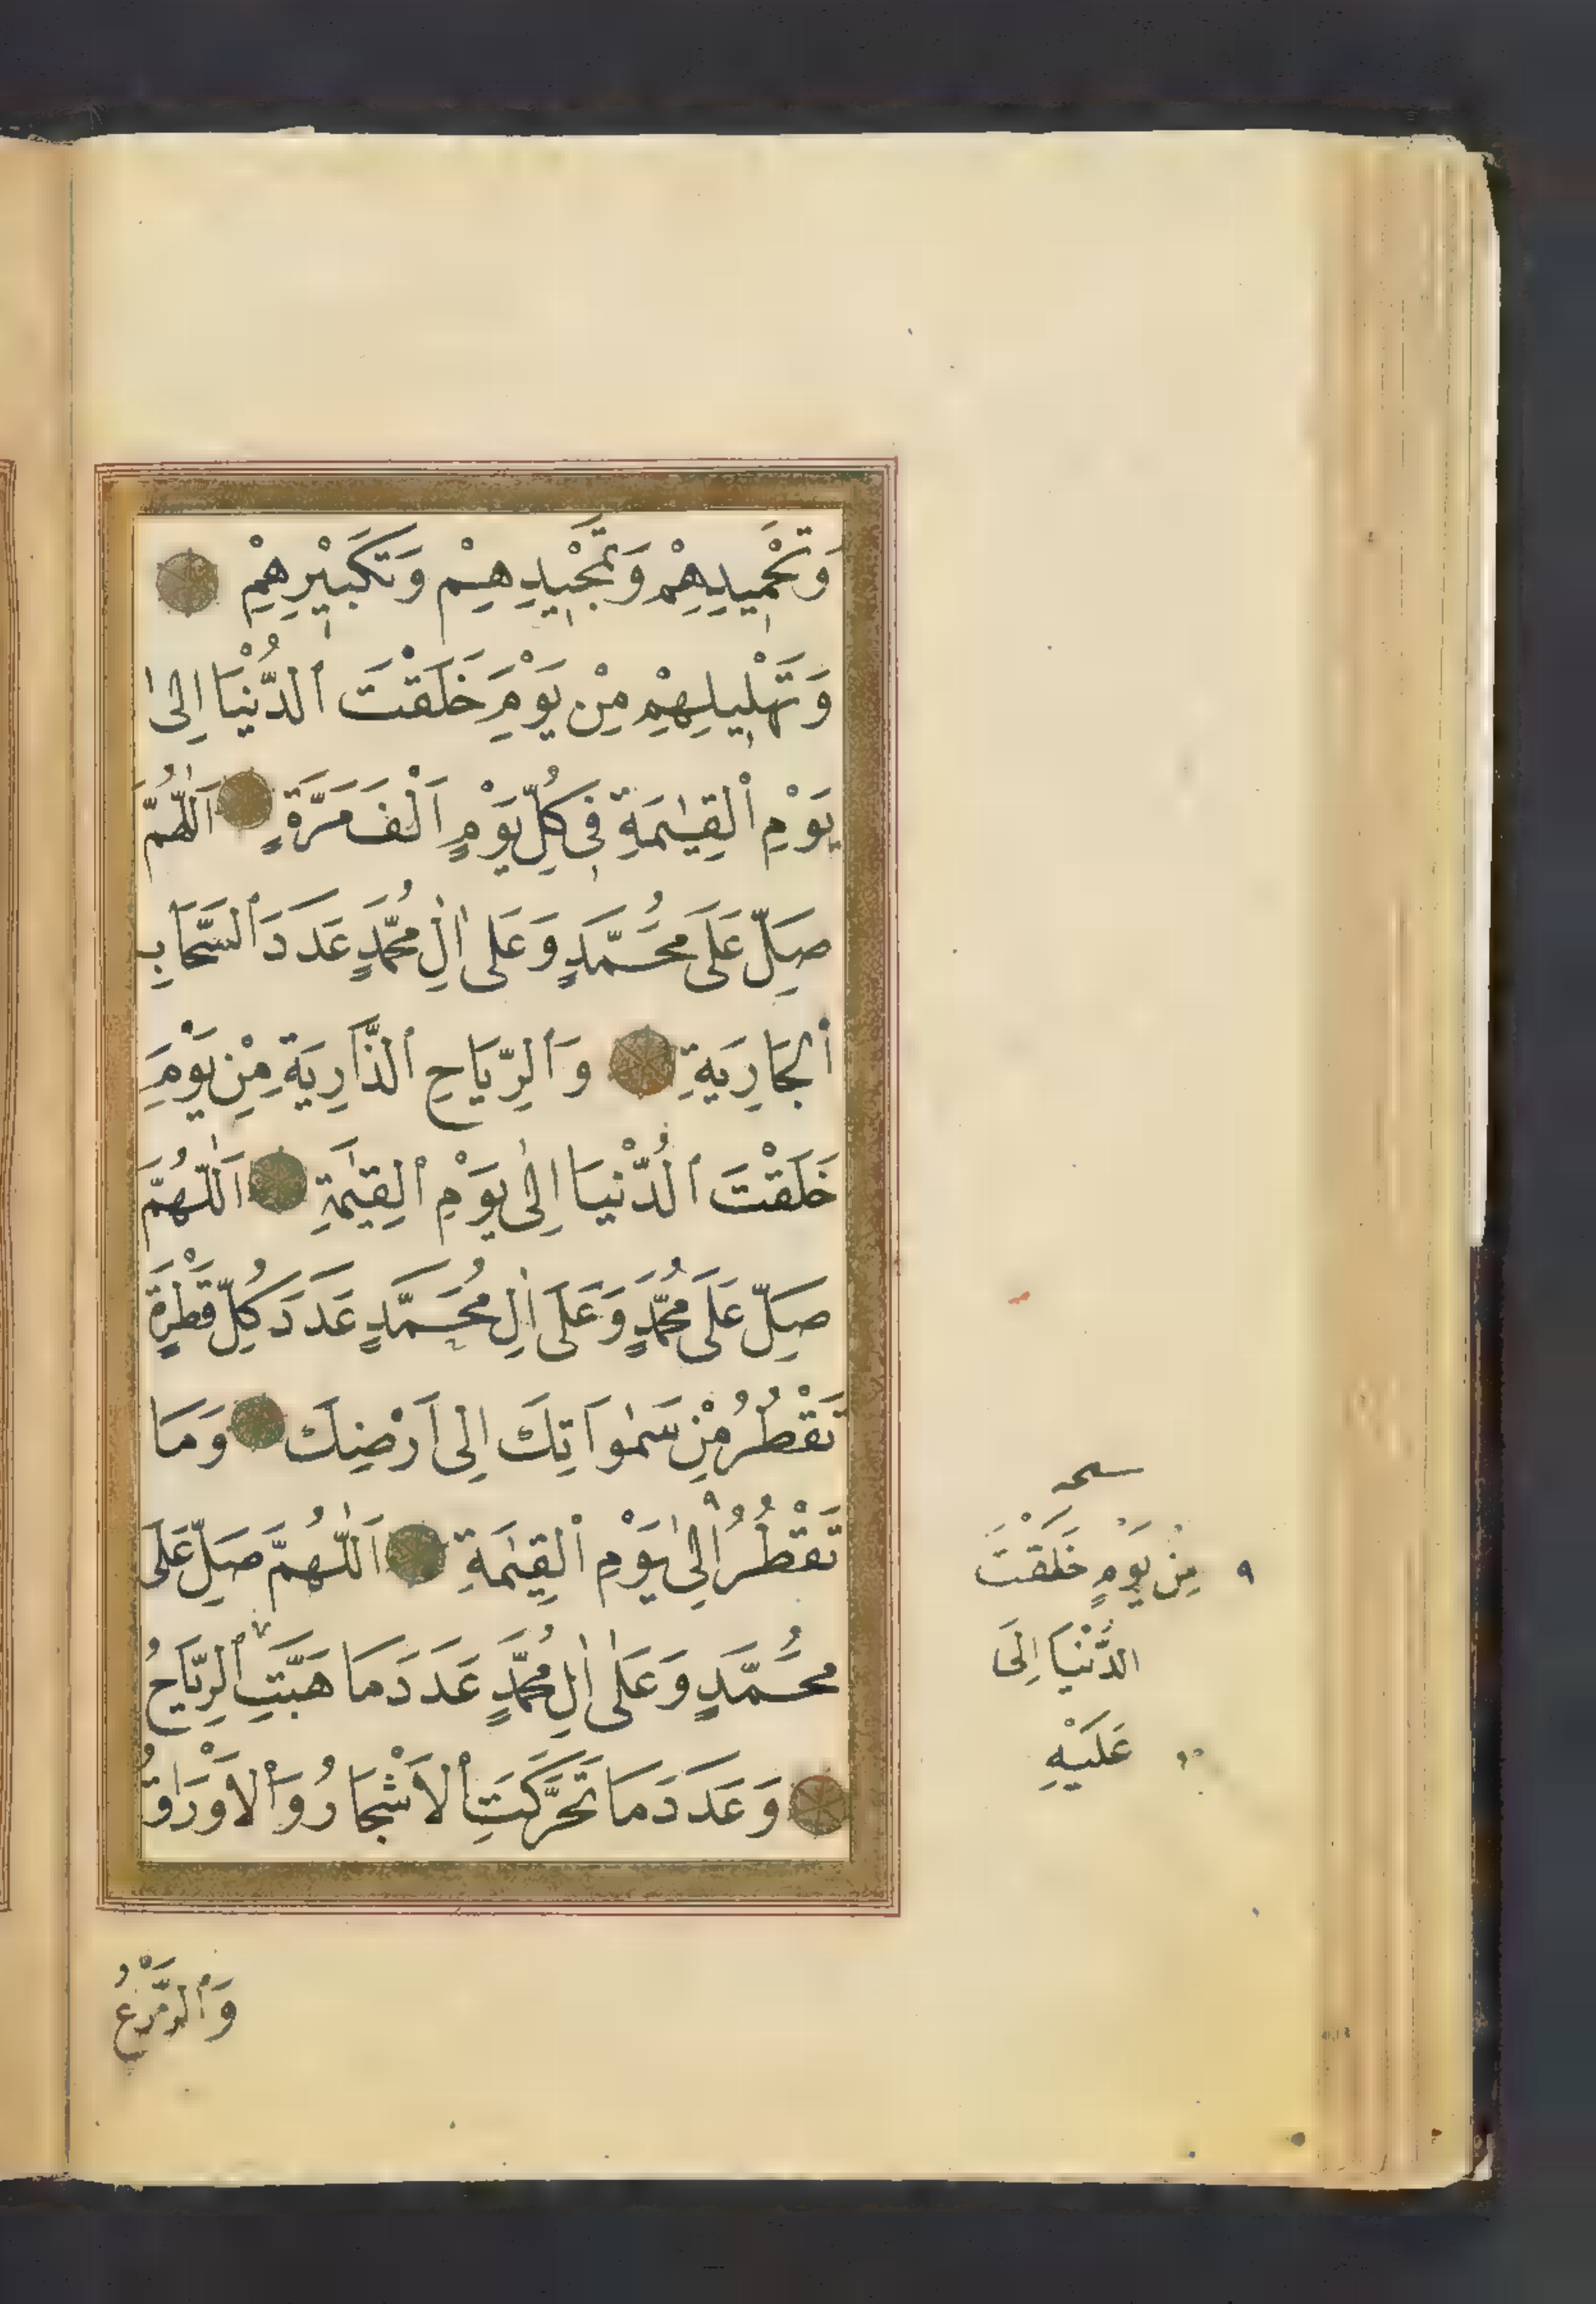 وَتَحْمِيدِهِمْ وَتَمْجِيدِهِمْ وَتَكْبِيْرِهِمْ
وَتَهْلِيلِهِمْ مِنْ يَوْمَ خَلَقْتَ ٱلدُّنْيَا اِلىٰ
يَوْمِ ٱلْقِيٰمَةِ فِى كُلِّ يَوْمٍ اَلْفَ مَرَّةٍ اَللّٰهُمَّ
صَلِّ عَلَى مُحَمَّدٍ وَعَلى اٰلِ مُحَمَّدٍ عَدَدَ ٱلسَّحَابِ
ٱلْجَارِيَةِ وَٱلرِّيَاحِ ٱلذَّارِيَةِ مِنْ يَوْمَ
خَلَقْتَ ٱلدُّنْيَا اِلٰى يَوْمِ ٱلْقِيٰمَةِ اَللّٰهُمَّ
صَلِّ عَلَى مُحَمَّدٍ وَعَلَى اٰلِ مُحَمَّدٍ عَدَدَ كُلِّ قَطْرَةٍ
تَقْطُرُ مِنْ سَمٰوَاتِكَ اِلى اَرْضِكَ وَمَا
تَقْطُرُ اِلىٰ يَوْمِ ٱلْقِيٰمَةِ اَللّٰهُمَّ صَلِّ عَلَى
مُحَمَّدٍ وَعَلٰى اٰلِ مُحَمَّدٍ عَدَدَ مَا هَبَّتِ ٱلرِّيَاحُ
وَعَدَدَ مَا تَحَرَّكَتِ ٱلاَشْجَارُ وَٱلاَوْرَاقُ
وَٱلزَّرْعُ
مِنْ يَوْمٍ خَلَقْتَ
الدُّنْيَا اِلَى
عَلَيْهِ